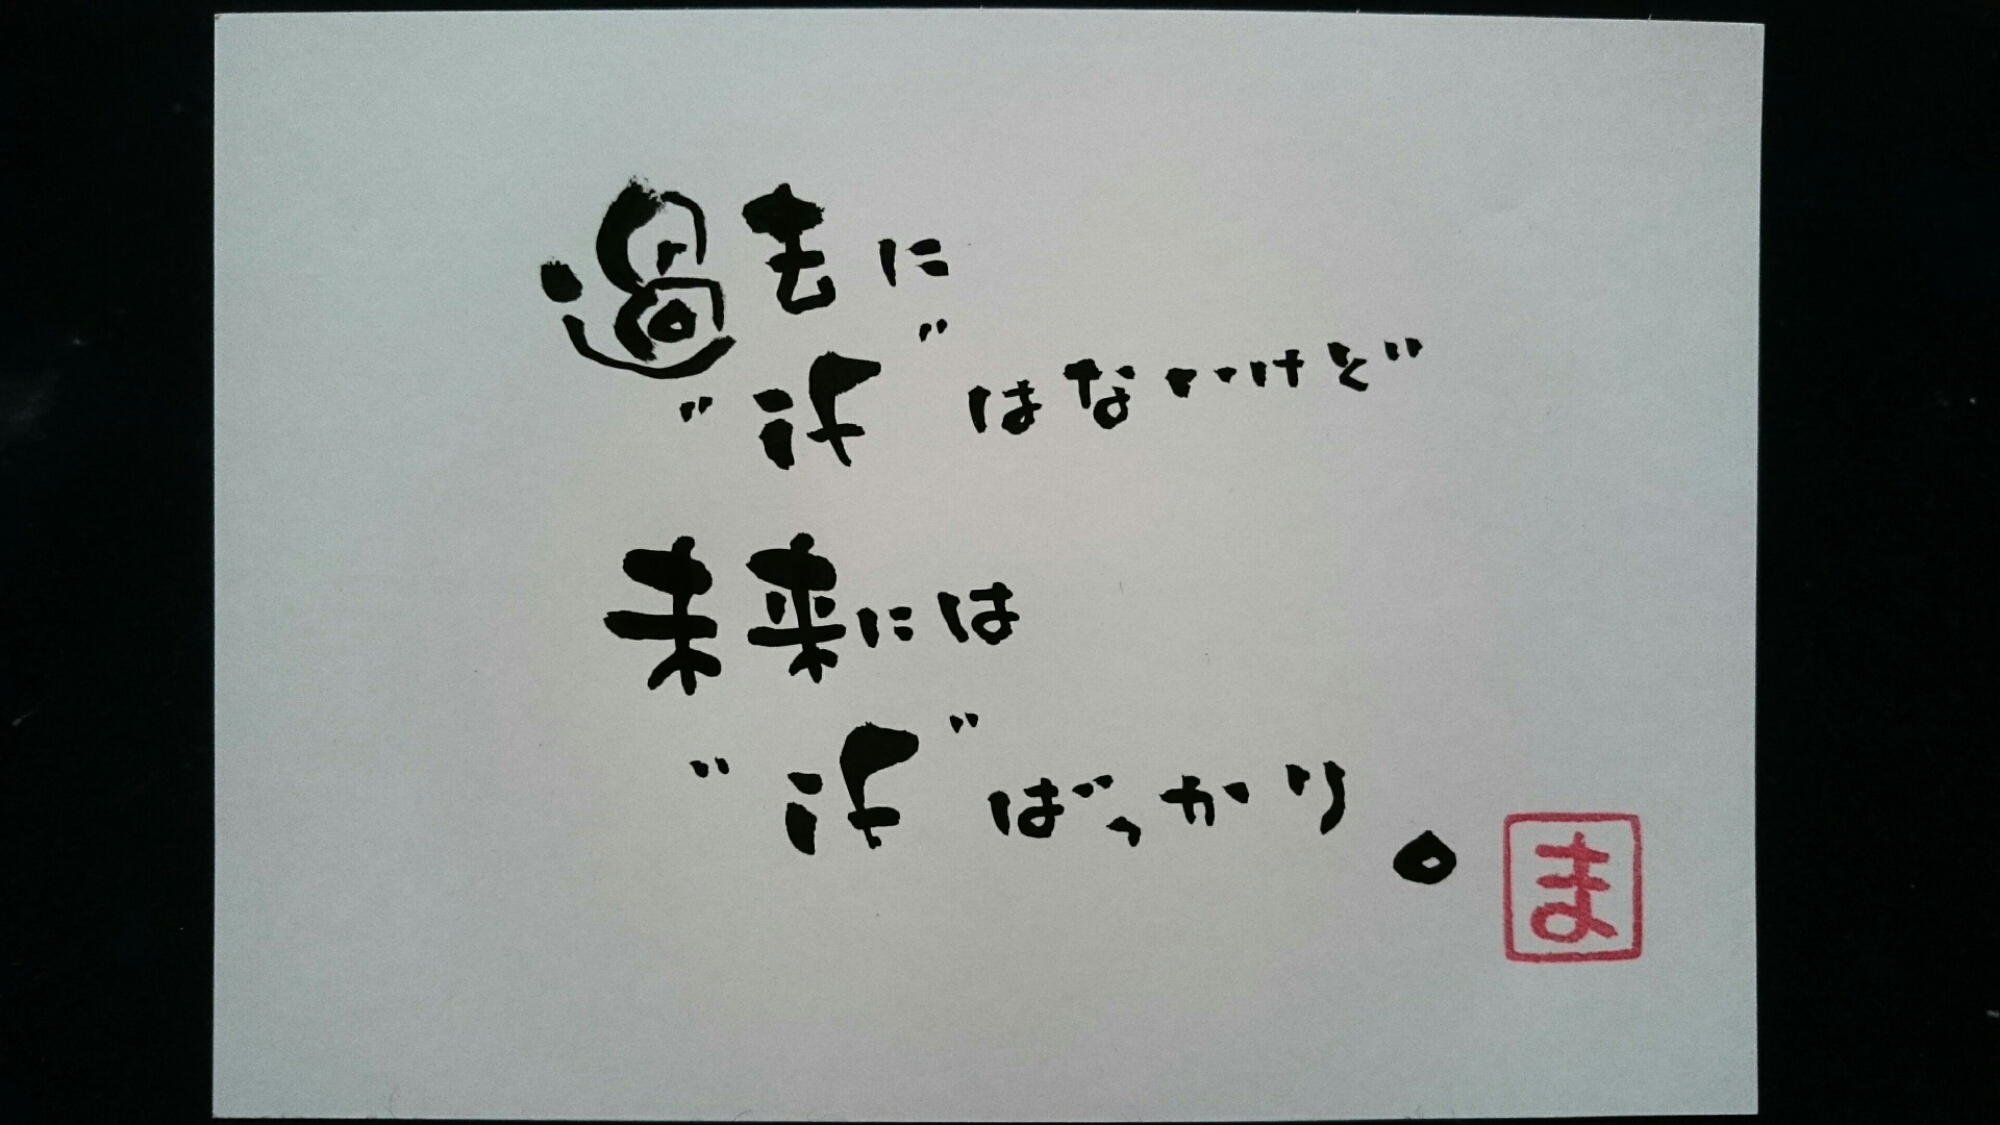 過去に
"if"はないけど
未来には
"if"ばっかり。
ま